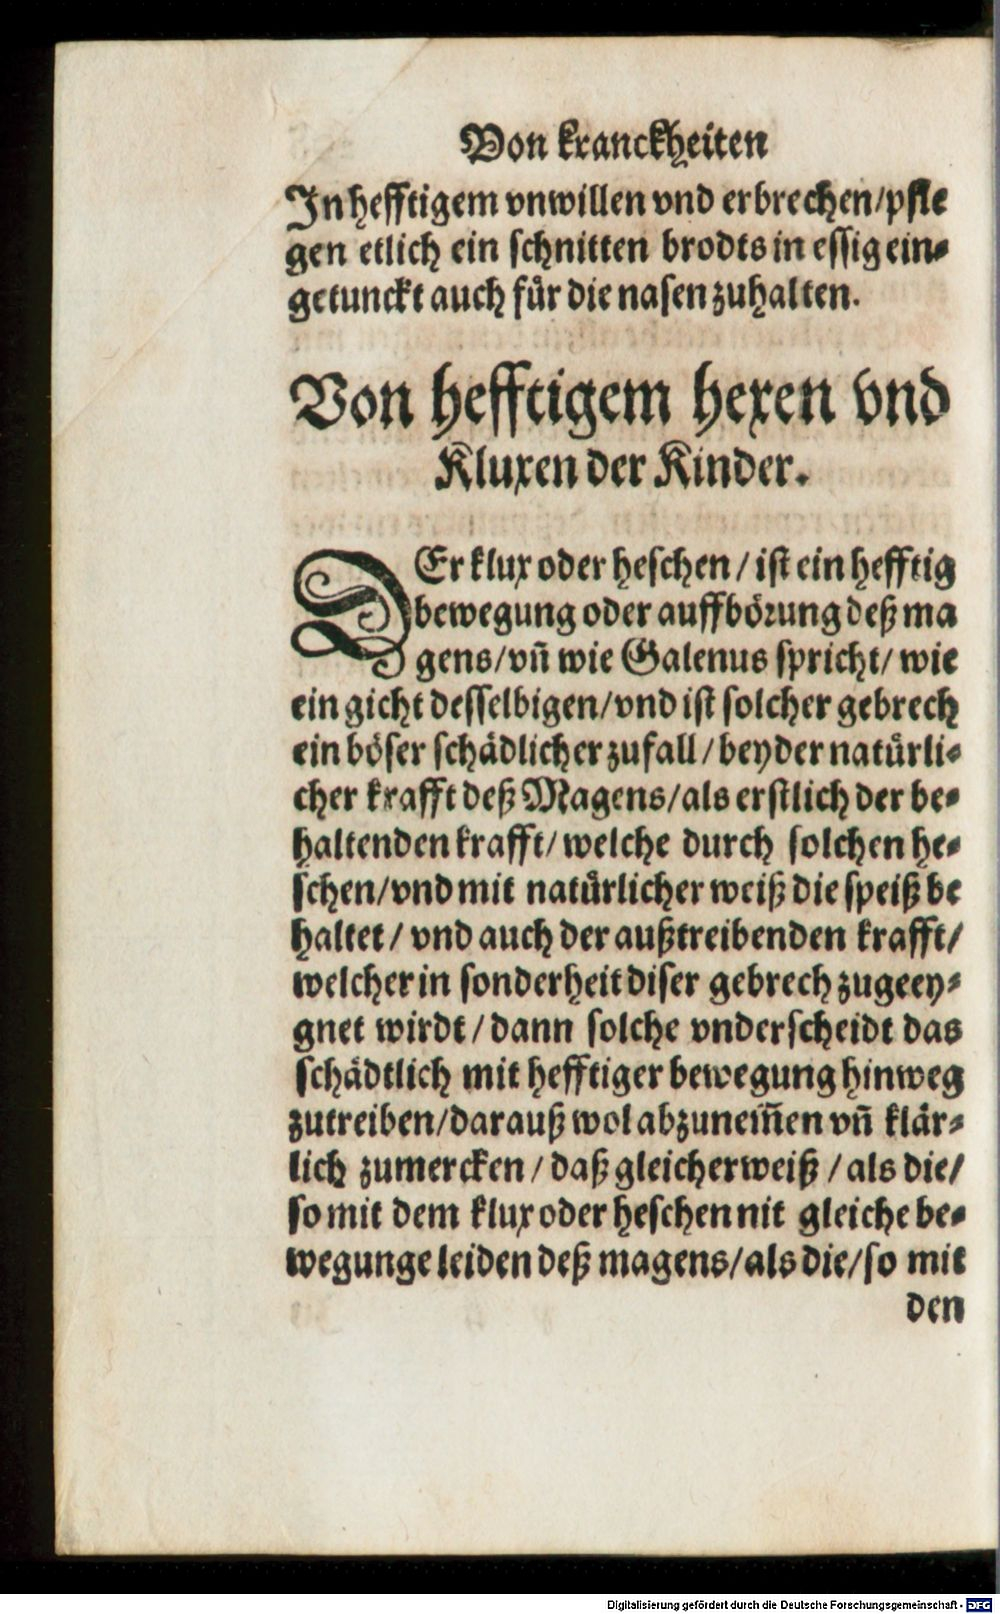 Von kranckheiten
In hefftigem vnwillen vnd erbrechen/pfle
gen etlich ein schnitten brodts in essig ein-
getunckt auch fůr die nasen zuhalten.
Von hefftigem hexen vnd
Kluxen der Kinder.
DEr klux oder heschen/ist ein hefftig
bewegung oder auffbörung deß ma
gens/vñ wie Galenus spricht/wie
ein gicht desselbigen/vnd ist solcher gebrech
ein böser schädlicher zufall/bey der natůrli-
cher krafft deß Magens/als erstlich der be-
haltenden krafft/welche durch solchen he-
schen/vnd mit natůrlicher weiß die speiß be
haltet/vnd auch der außtreibenden krafft/
welcher in sonderheit diser gebrech zugeey-
gnet wirdt/dann solche vnderscheidt das
schädtlich mit hefftiger bewegung hinweg
zutreiben/darauß wol abzunem̃en vñ klär-
lich zumercken/daß gleicherweiß/als die/
so mit dem klux oder heschen nit gleiche be-
wegunge leiden deß magens/als die/so mit
den
Digitalisierung gefördert durch die Deutsche Forschungsgemeinschaft - DFG